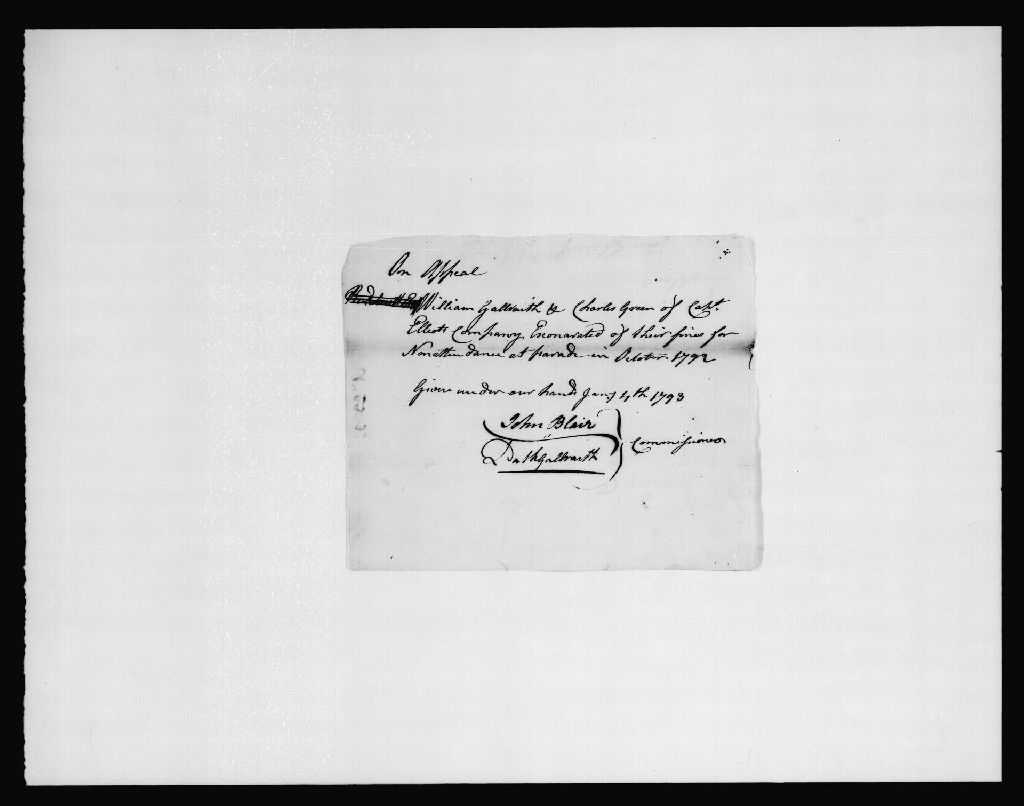 On Appeal
William Gallbraith & Charles Green of Capt.
Elliots Company Exonarated of their fines for
Nonattendance at parade in Octobr 1792
Given under our hands Jany 4th 1793
John Blair
Commissioners